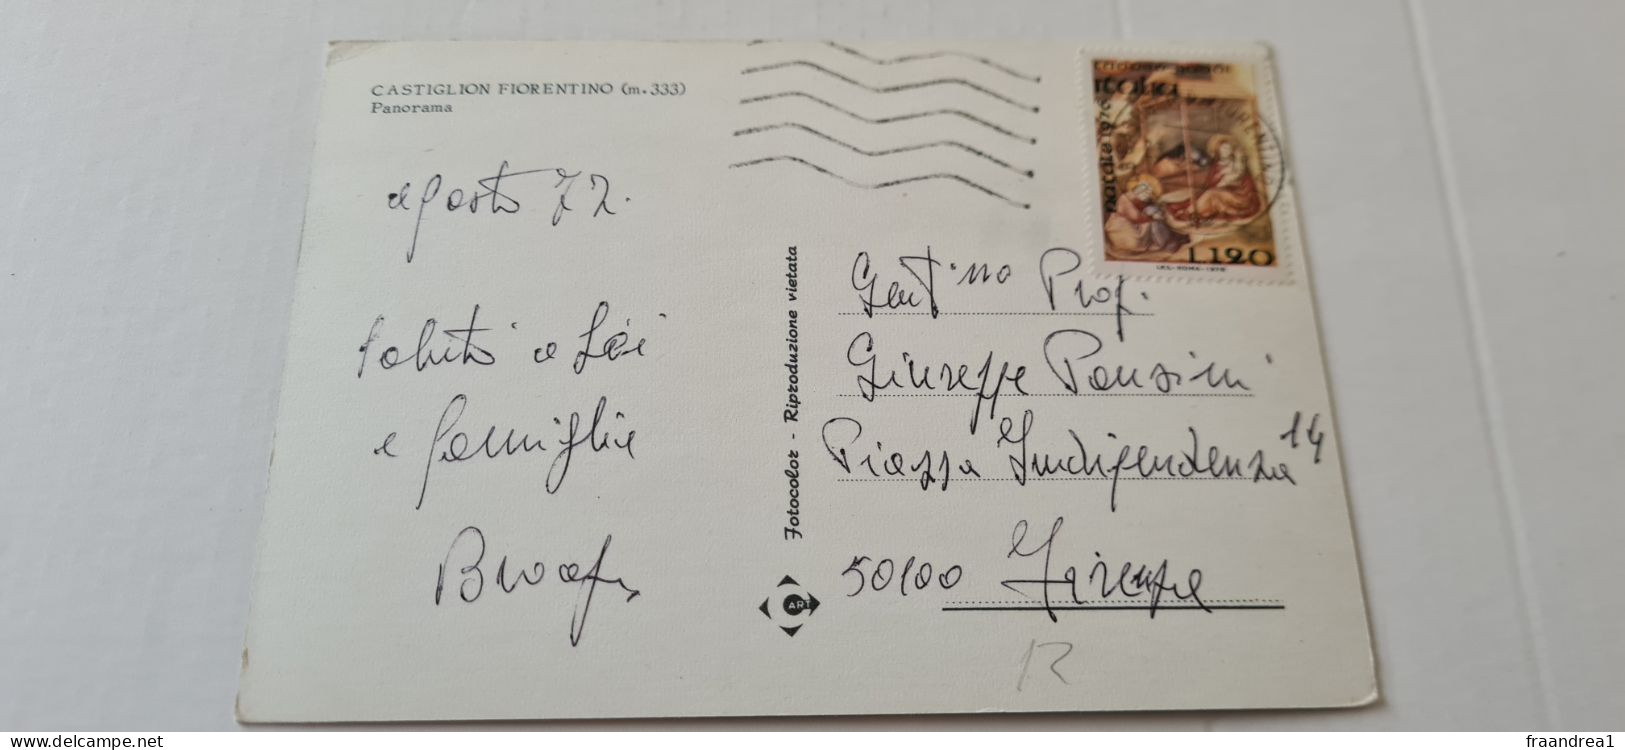 CASTIGLION FIORENTINO (m.333)
Panorama
agosto 77.
Saluti a Lei
e famiglia
Fotocolor - Riproduzione vietata
ART
Italia
natale 1976
L.120
I.P.S.-ROMA-1976
Gent.mo Prof.
Giuseppe Pansini
Piazza Indipendenza 14
50100 Firenze
R
www.delcampe.net
fraandrea1